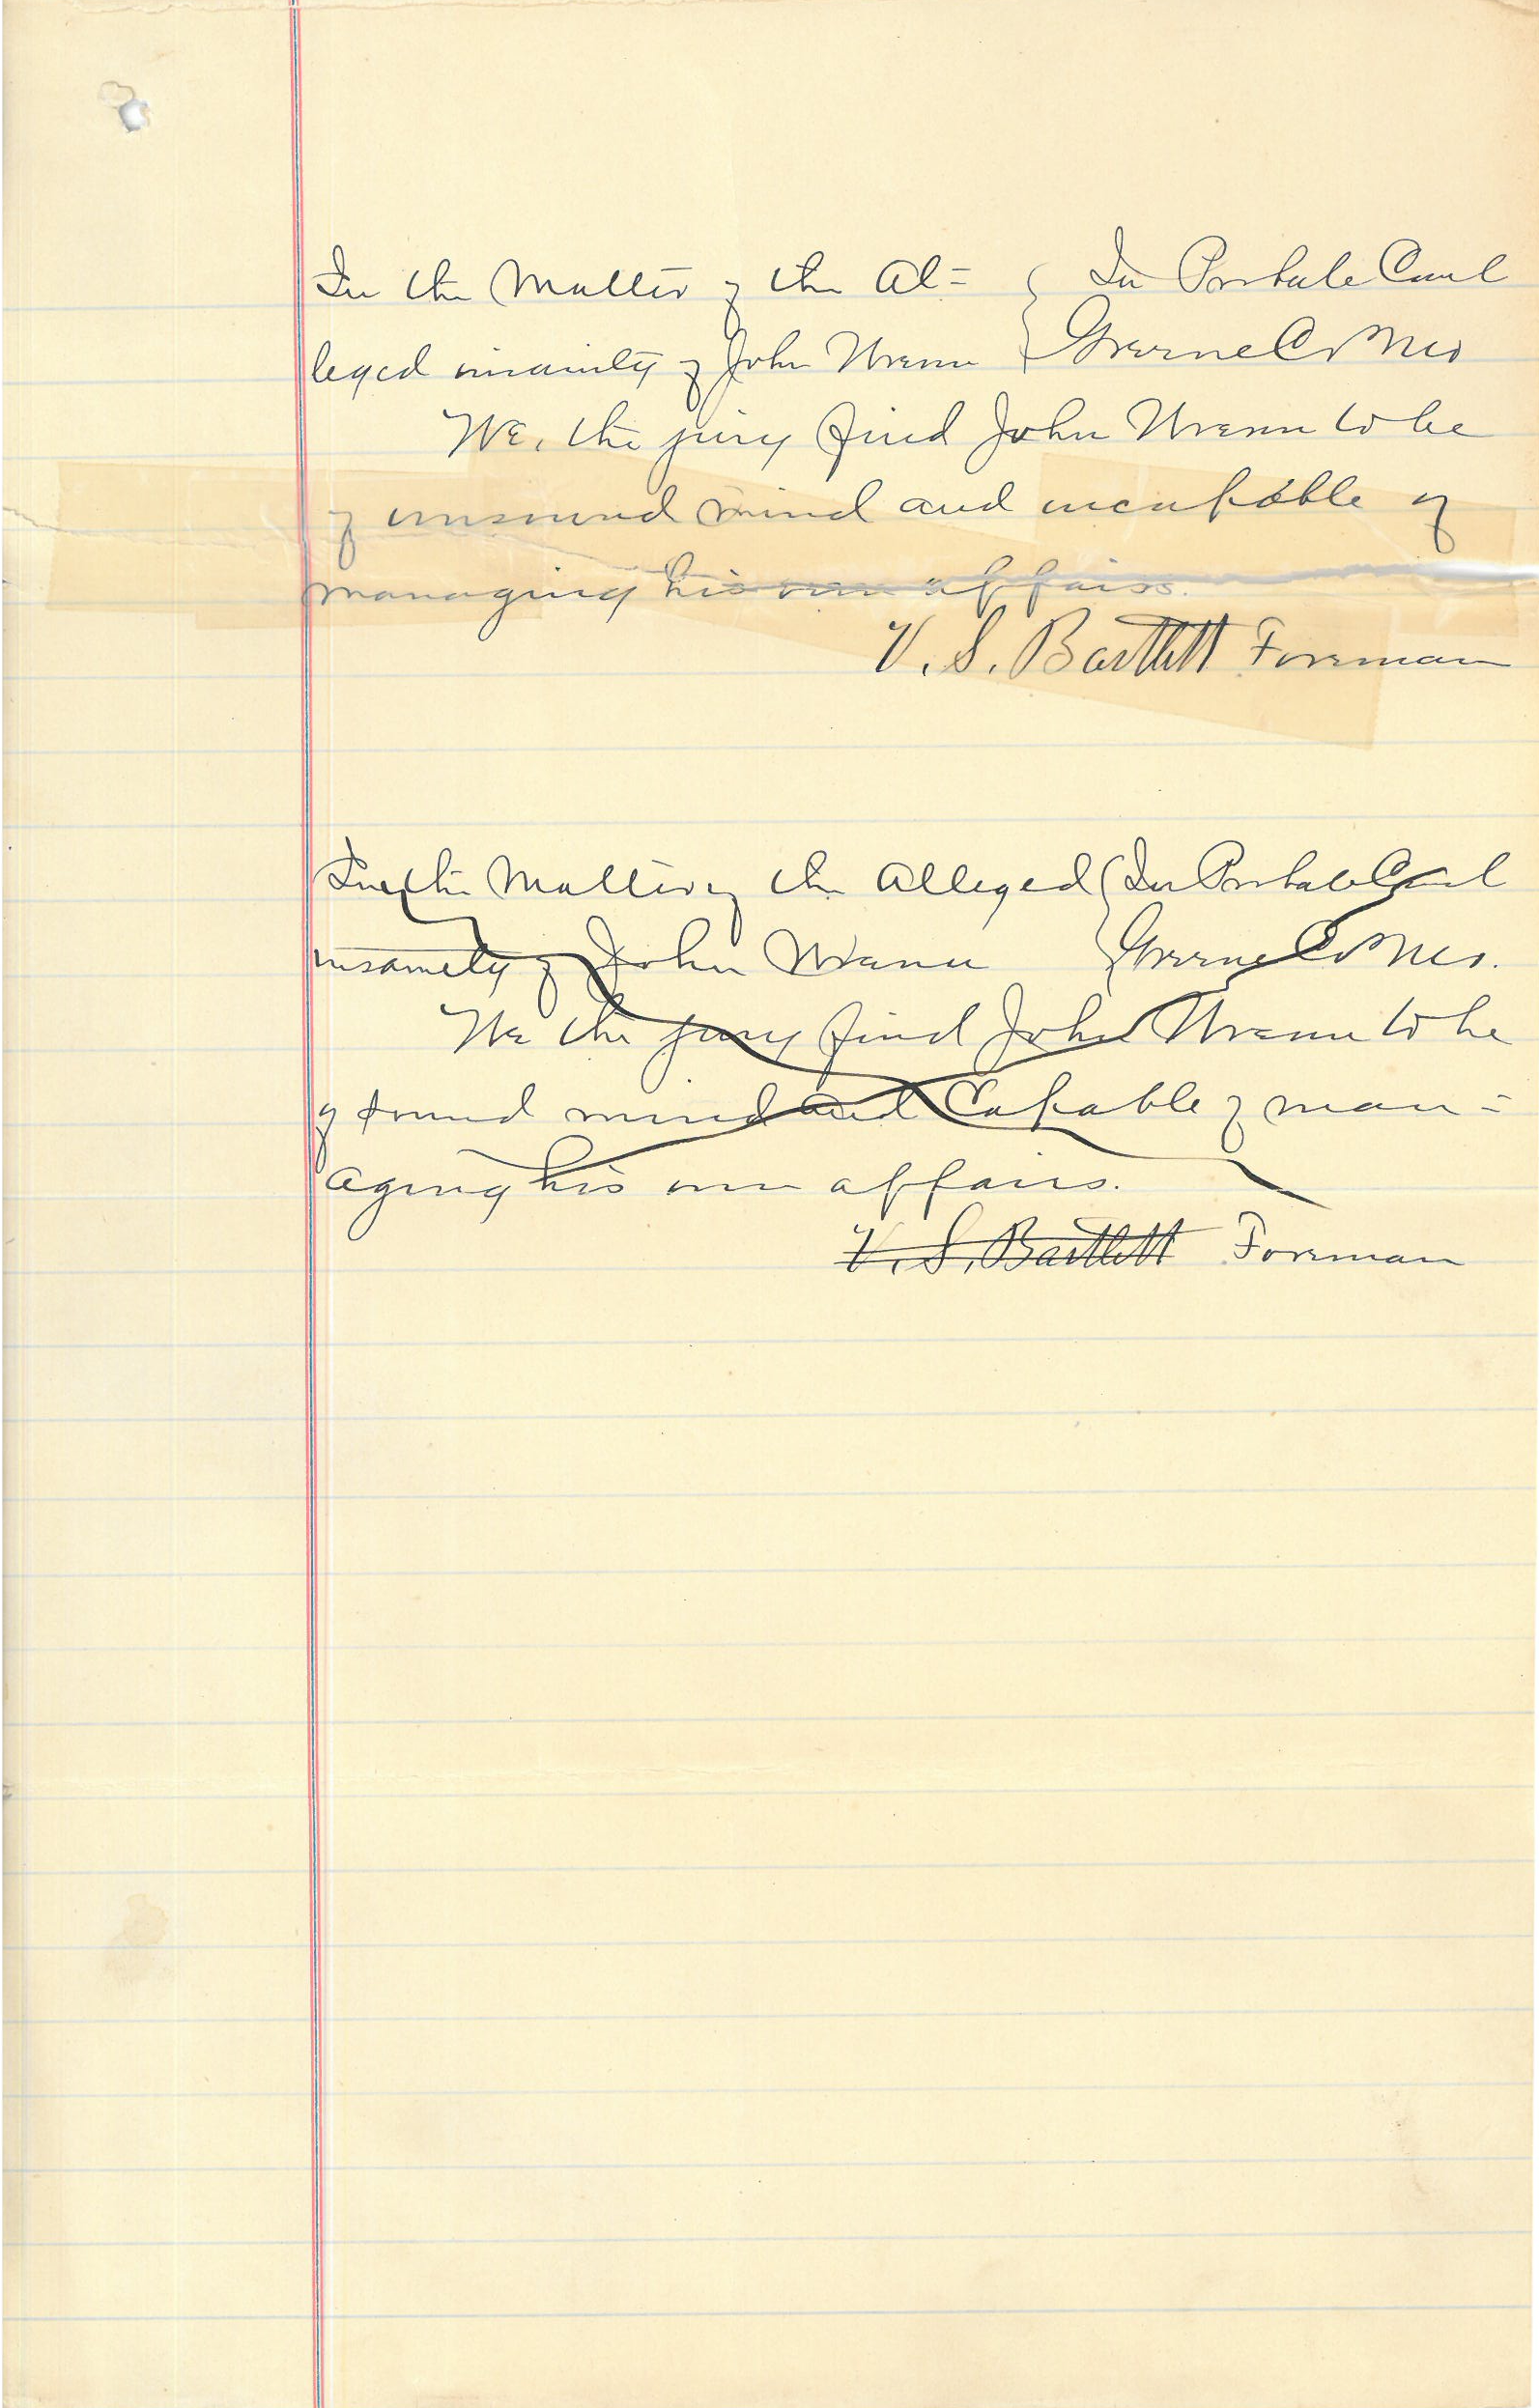 In the Matter of the Al= { In Probate Court
leged insanity of John Wrenn { Greene Co Mo
We, the jury find John Wrenn to be
of unsound mind and incapable of
managing his own affairs.
V. S. Bartlett Foreman
In the Matter of the Alleged { In Probate Court
insanity of John Wrenn { Greene Co Mo.
We the jury find John Wrenn to be
of sound mind and Capable of man=
aging his own affairs.
V. S. Bartlett Foreman